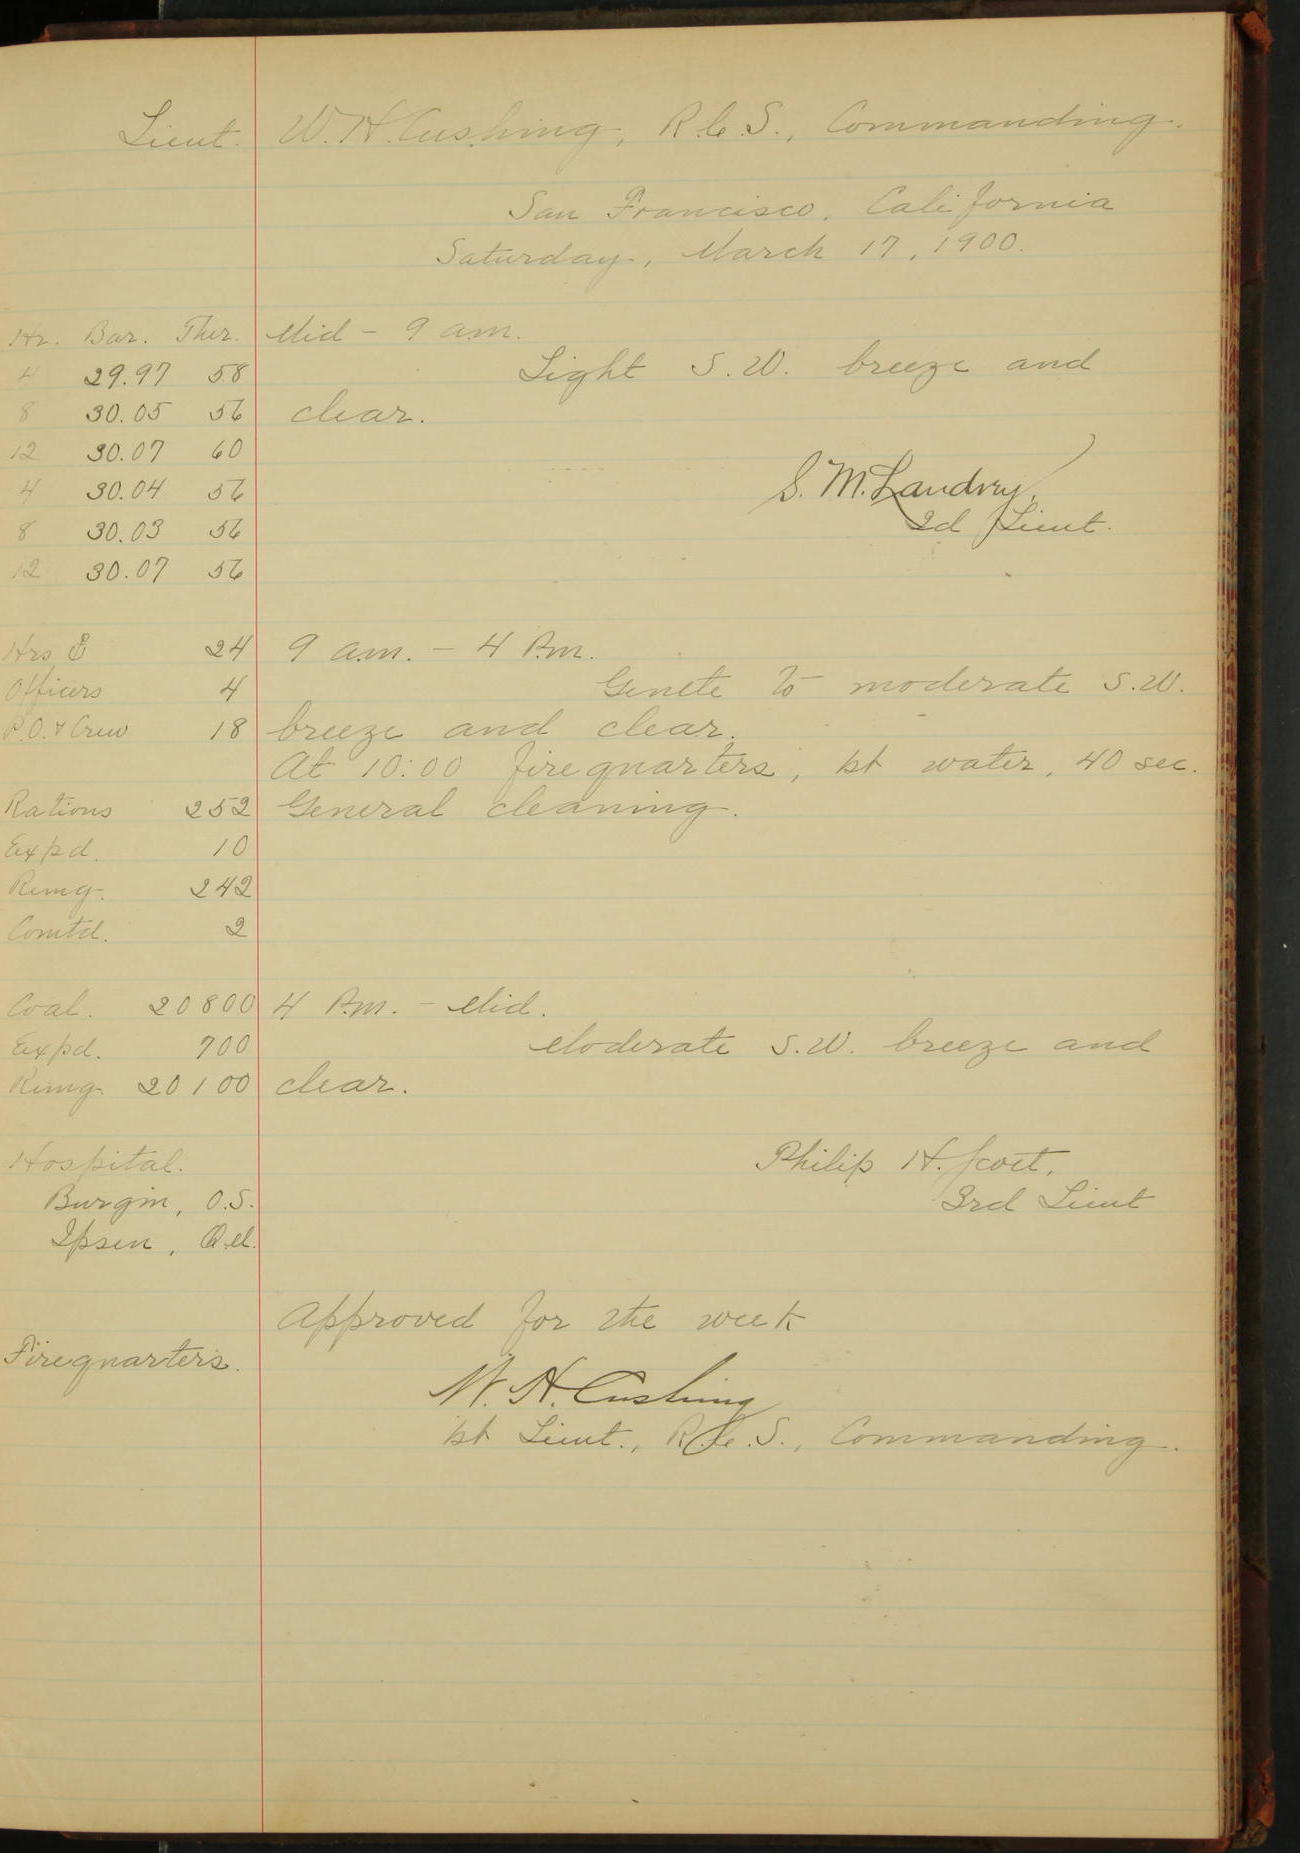 Lieut. W. H. Cushing, R.C.S., Commanding.
San Francisco, California
Saturday, March 17, 1900.
Hr. Bar. Ther. Mid - 9 a.m.
4 29.97 58 Light S.W. breeze and
8 30.05 56 clear.
12 30.07 60
4 30.04 56 S. M. Landry,
8 30.03 56 2d Lieut.
12 30.07 56
Hrs 24 9 a.m. - 4 P.m.
Officers 4 Genete to moderate S.W.
P.O. & Crew 18 breeze and clear.
At 10:00 firequarters, 1st water, 40 sec.
Rations 252 General cleaning.
Expd. 10
Remg. 242
Comtd. 2
Coal. 20800 4 P.m. - Mid.
Expd. 700 Moderate S.W. breeze and
Remg. 20100 clear.
Hospital. Philip H. Scott,
Burgin, O.S. 3rd Lieut
Ipsen,
Approved for the week
Firequarters.
W. H. Cushing
1st Lieut., R.C.S., Commanding.